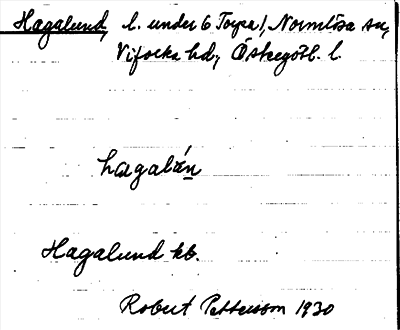 Hagalund, l. under 6 Torpa!, Normlösa sn,
Vifolka hd, Östergötl. l.
hagalán
Hagalund kb.
Robert Pettersson 1930